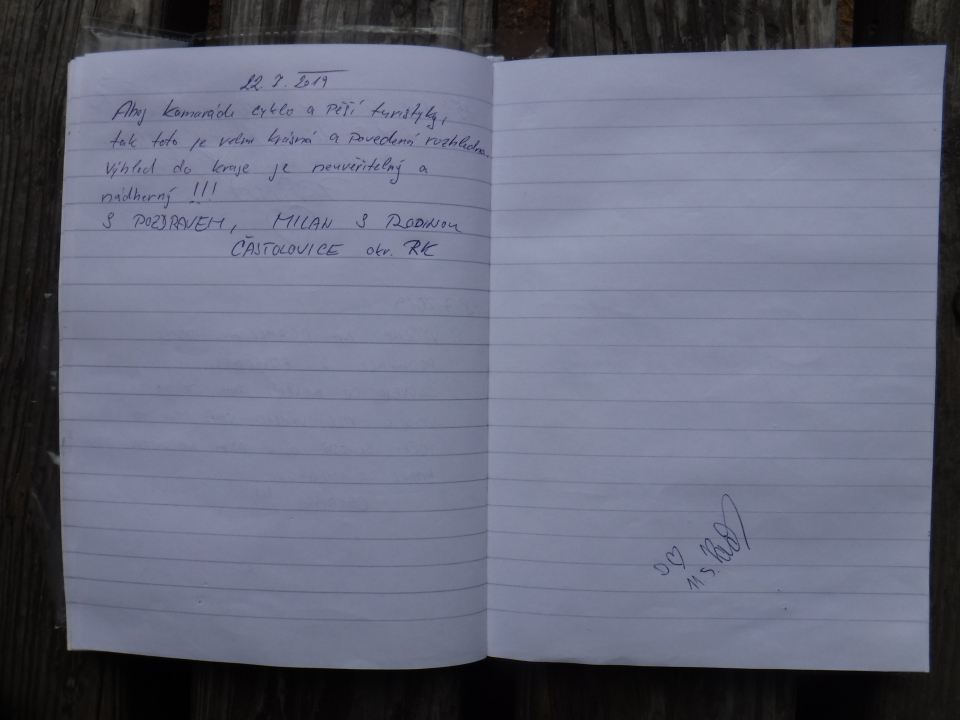 22. 7. 2019
Ahoj kamarádi cyklo a pěší turistyky,
tak toto je velmi krásná a povedená rozhledna.
Výhled do kraje je neuvěřitelný a
nádherný !!!
S POZDRAVEM, MILAN S RODINOU
ČASTOLOVICE okr. RK